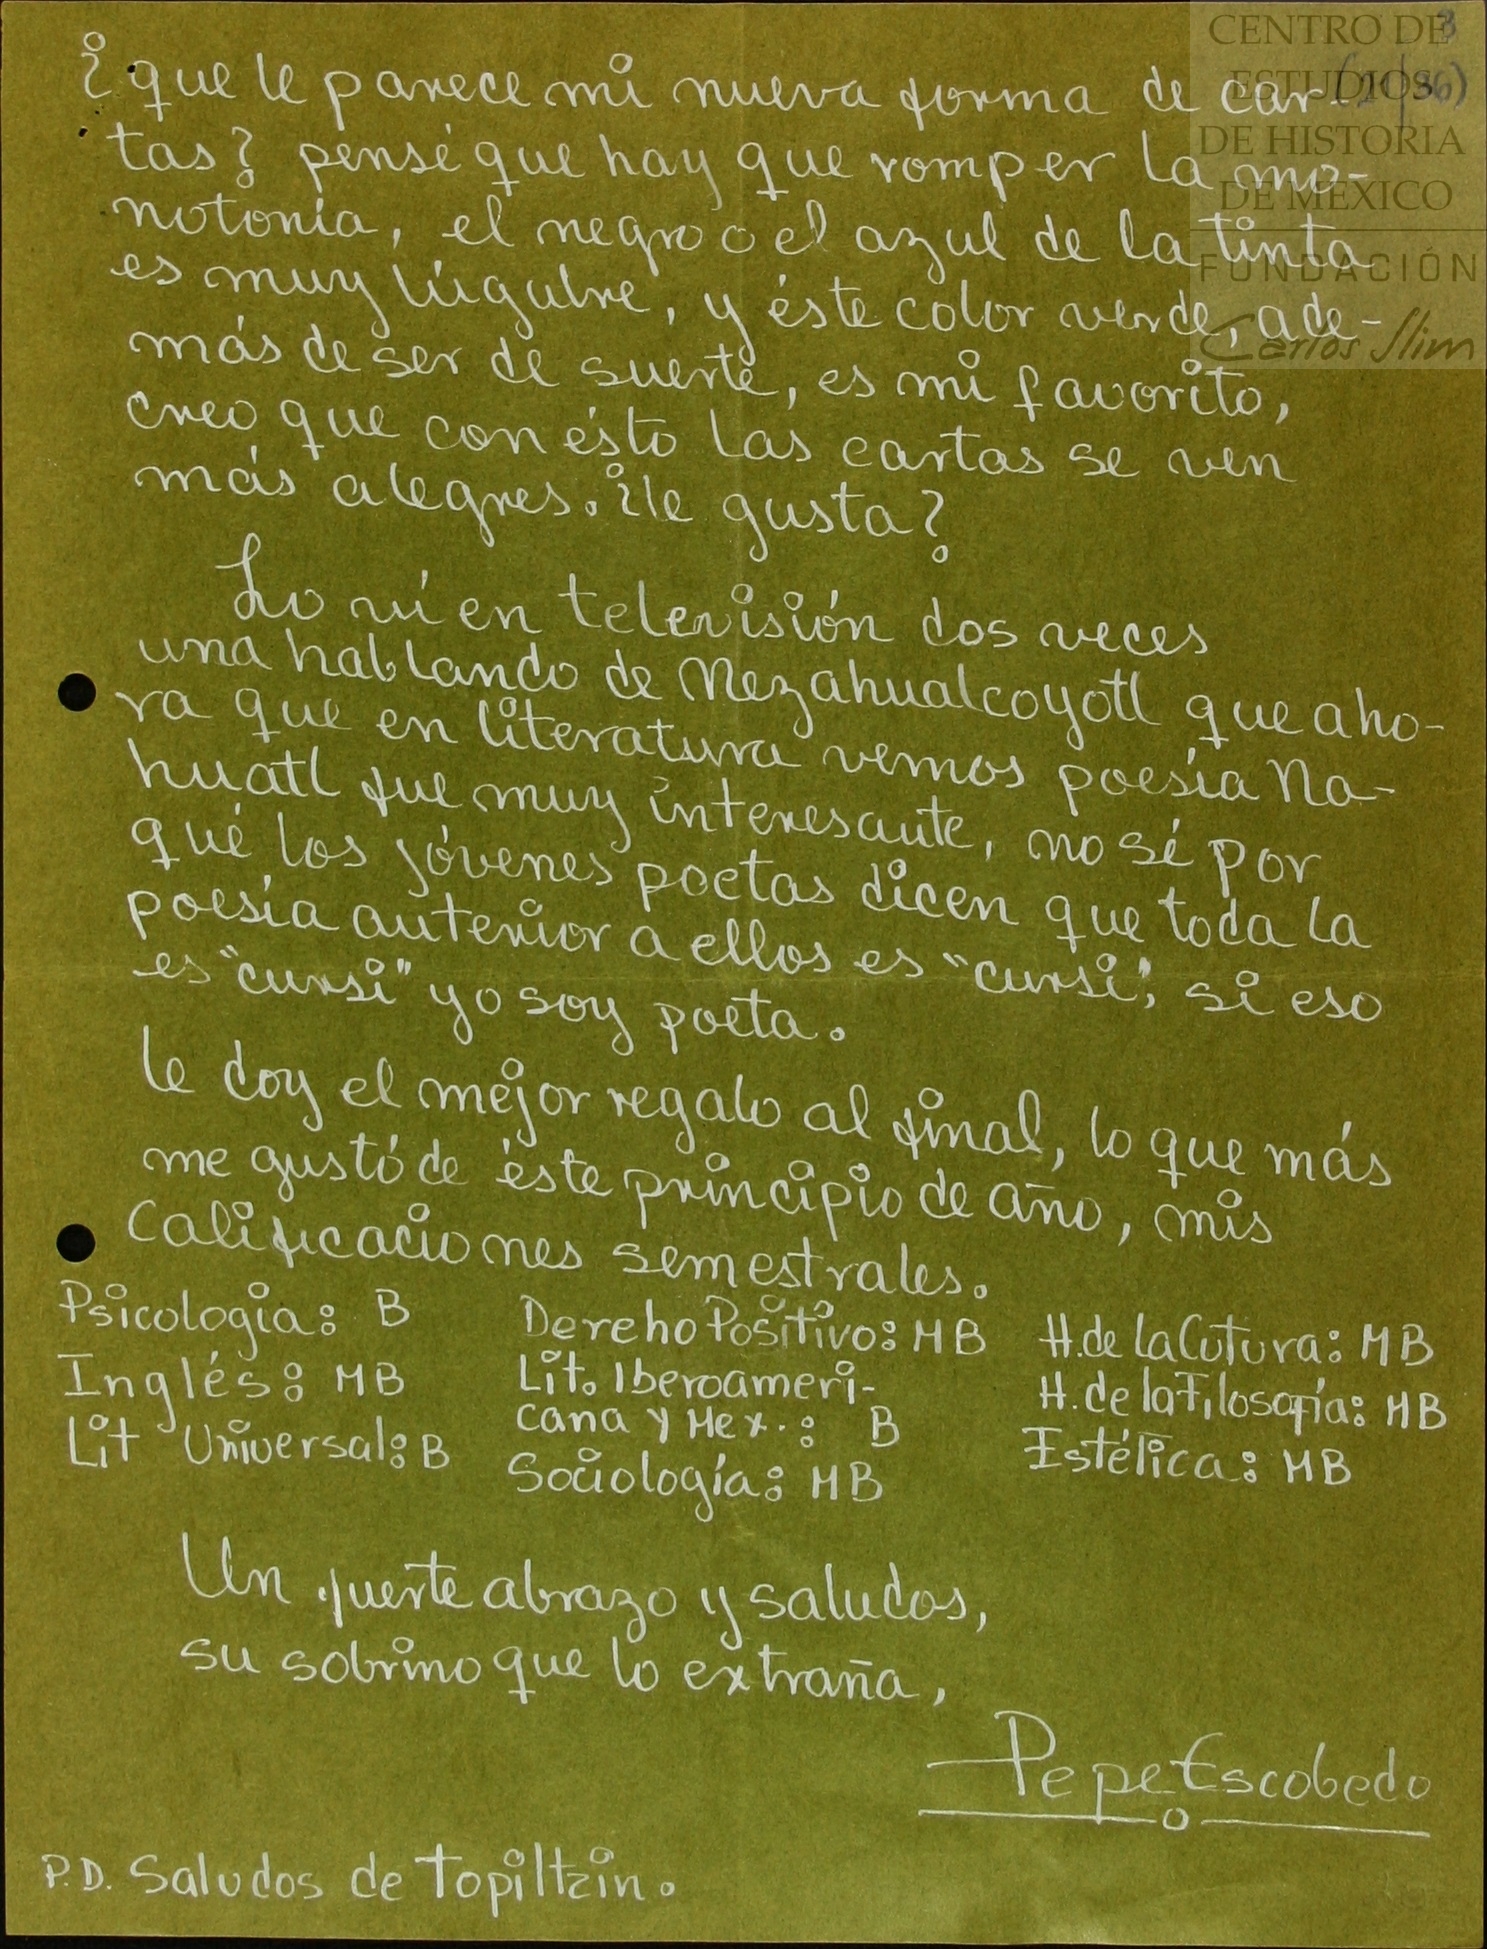 3
(21/36)
CENTRO DE
ESTUDIOS
DE HISTORIA
DE MEXICO
FUNDACIÓN
Carlos Slim
¿que le parece mi nueva forma de car-
tas? pensé que hay que romper la mo-
notonía, el negro o el azul de la tinta
es muy lúgubre, y éste color verde, ade-
más de ser de suerte, es mi favorito,
creo que con ésto las cartas se ven
más alegres. ¿le gusta?
Lo ví en televisión dos veces
una hablando de Nezahualcoyotl que aho-
ra que en literatura vemos poesía Na-
huatl fue muy interesante, no sé por
qué los jóvenes poetas dicen que toda la
poesía anterior a ellos es "cursi", si eso
es "cursi" yo soy poeta.
le doy el mejor regalo al final, lo que más
me gustó de éste principio de año, mis
Calificaciones semestrales.
Psicologia: B
Inglés: MB
Lit Universal: B
Dereho Positivo: MB
Lit. Iberoameri-
cana y Mex.: B
Sociología: MB
H. de la Cutura: MB
H. de la Filosofía: MB
Estética: MB
Un fuerte abrazo y saludos,
su sobrino que lo extraña,
Pepe Escobedo
P.D. Saludos de Topiltzin.